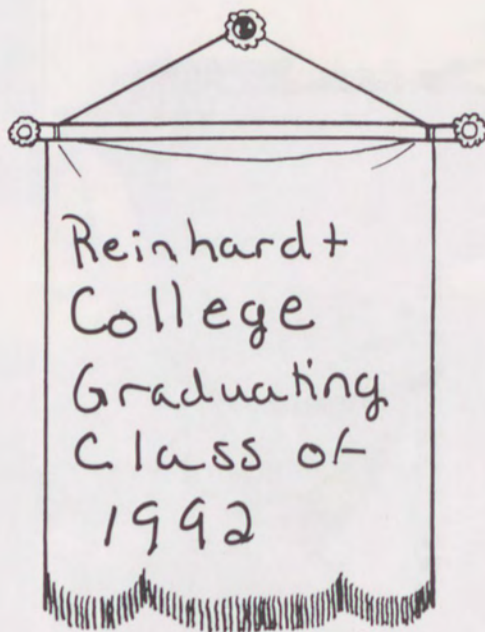 Reinhardt
College
Graduating
Class of
1992